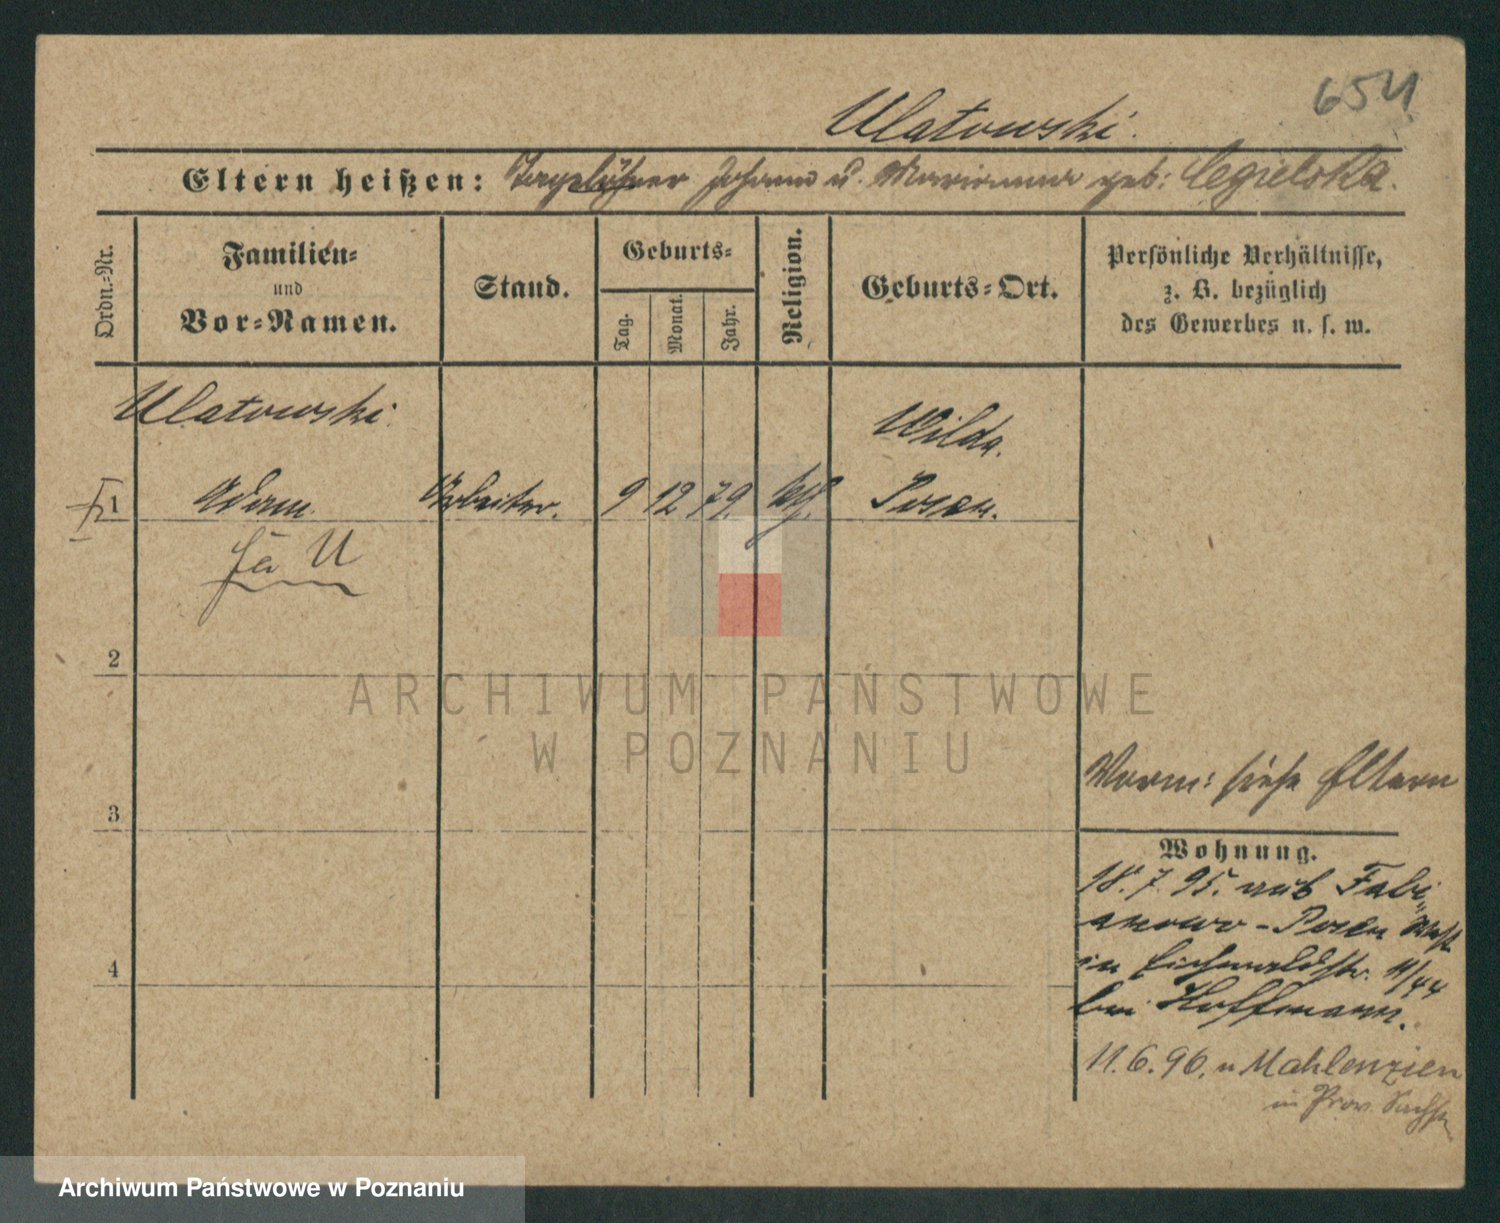 654
Ulatowski.
Eltern heißen: Tagelöhner Johann u. Marianna geb: Cegielska.
Ordn.-Nr.
Familien-
und
Vor-Namen.
Stand.
Geburts-
Tag.
Monat.
Jahr.
Religion.
Geburts-Ort.
Persönliche Verhältnisse,
z. B. bezüglich
des Gewerbes u. s. w.
Ulatowski.
Wilda.
1 Adam. Arbeiter. 9 12 79. kth. Posen.
U
2
ARCHIWUM PAŃSTWOWE
W POZNANIU
Vorm: siehe Eltern
3
Wohnung.
18.7.95. aus Fabi-
anowo - Posen West
in Eichwaldstr. 11/44
4
bei Hoffmann.
11.6.96. n Mahlenzien
in Prov. Sachse
Archiwum Państwowe w Poznaniu